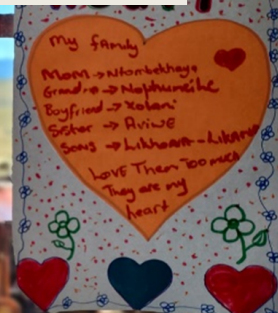 My family
Mom → Ntombekhaya
Grandma → Nophumeihe
Boyfriend → Xolani
Sister → Aviwe
Sons → Likhona - Likam
Love Them Too much
They are my
heart